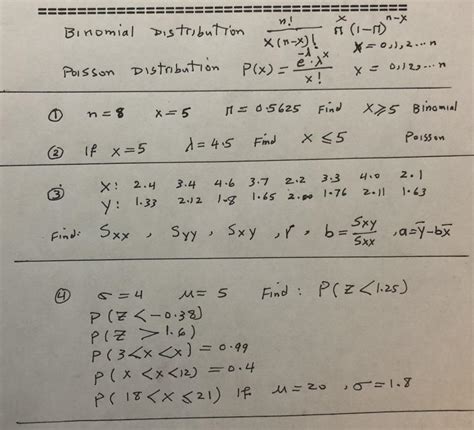 Binomial Distribution n! / x(n-x)! π^x (1-π)^n-x
x = 0,1,2...n
Poisson Distribution P(x) = e^-λ · λ^x / x! x = 0,1,2,...n
① n=8 x=5 π=0.5625 Find x⩾5 Binomial
② If x=5 λ=4.5 Find x ≤5 Poisson
③ X: 2.4 3.4 4.6 3.7 2.2 3.3 4.0 2.1
Y: 1.33 2.12 1.8 1.65 2.00 1.76 2.11 1.63
Find: Sxx, Syy, Sxy, r, b = Sxy/Sxx, a=ȳ-bx̄
④ σ=4 μ=5 Find: P(Z<1.25)
P(Z<-0.38)
P(Z > 1.6)
P(3<x<x) = 0.99
P(x<x<12) = 0.4
P(18<x≤21) If μ=20, σ=1.8